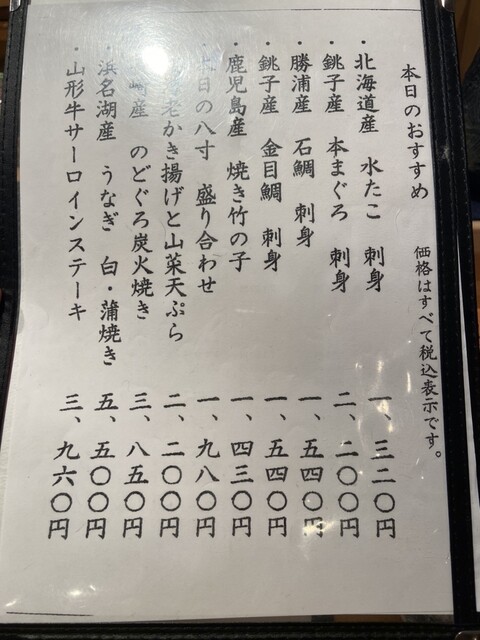 本日のおすすめ　価格はすべて税込表示です。
・北海道産　水たこ　刺身　一、三二〇円
・銚子産　本まぐろ　刺身　二、二〇〇円
・勝浦産　石鯛　刺身　一、五四〇円
・銚子産　金目鯛　刺身　一、五四〇円
・鹿児島産　焼き竹の子　一、四三〇円
日の八寸　盛り合わせ　一、九八〇円
老かき揚げと山菜天ぷら　二、二〇〇円
崎産　のどぐろ炭火焼き　三、八五〇円
・浜名湖産　うなぎ　白・蒲焼き　五、五〇〇円
・山形牛サーロインステーキ　三、九六〇円